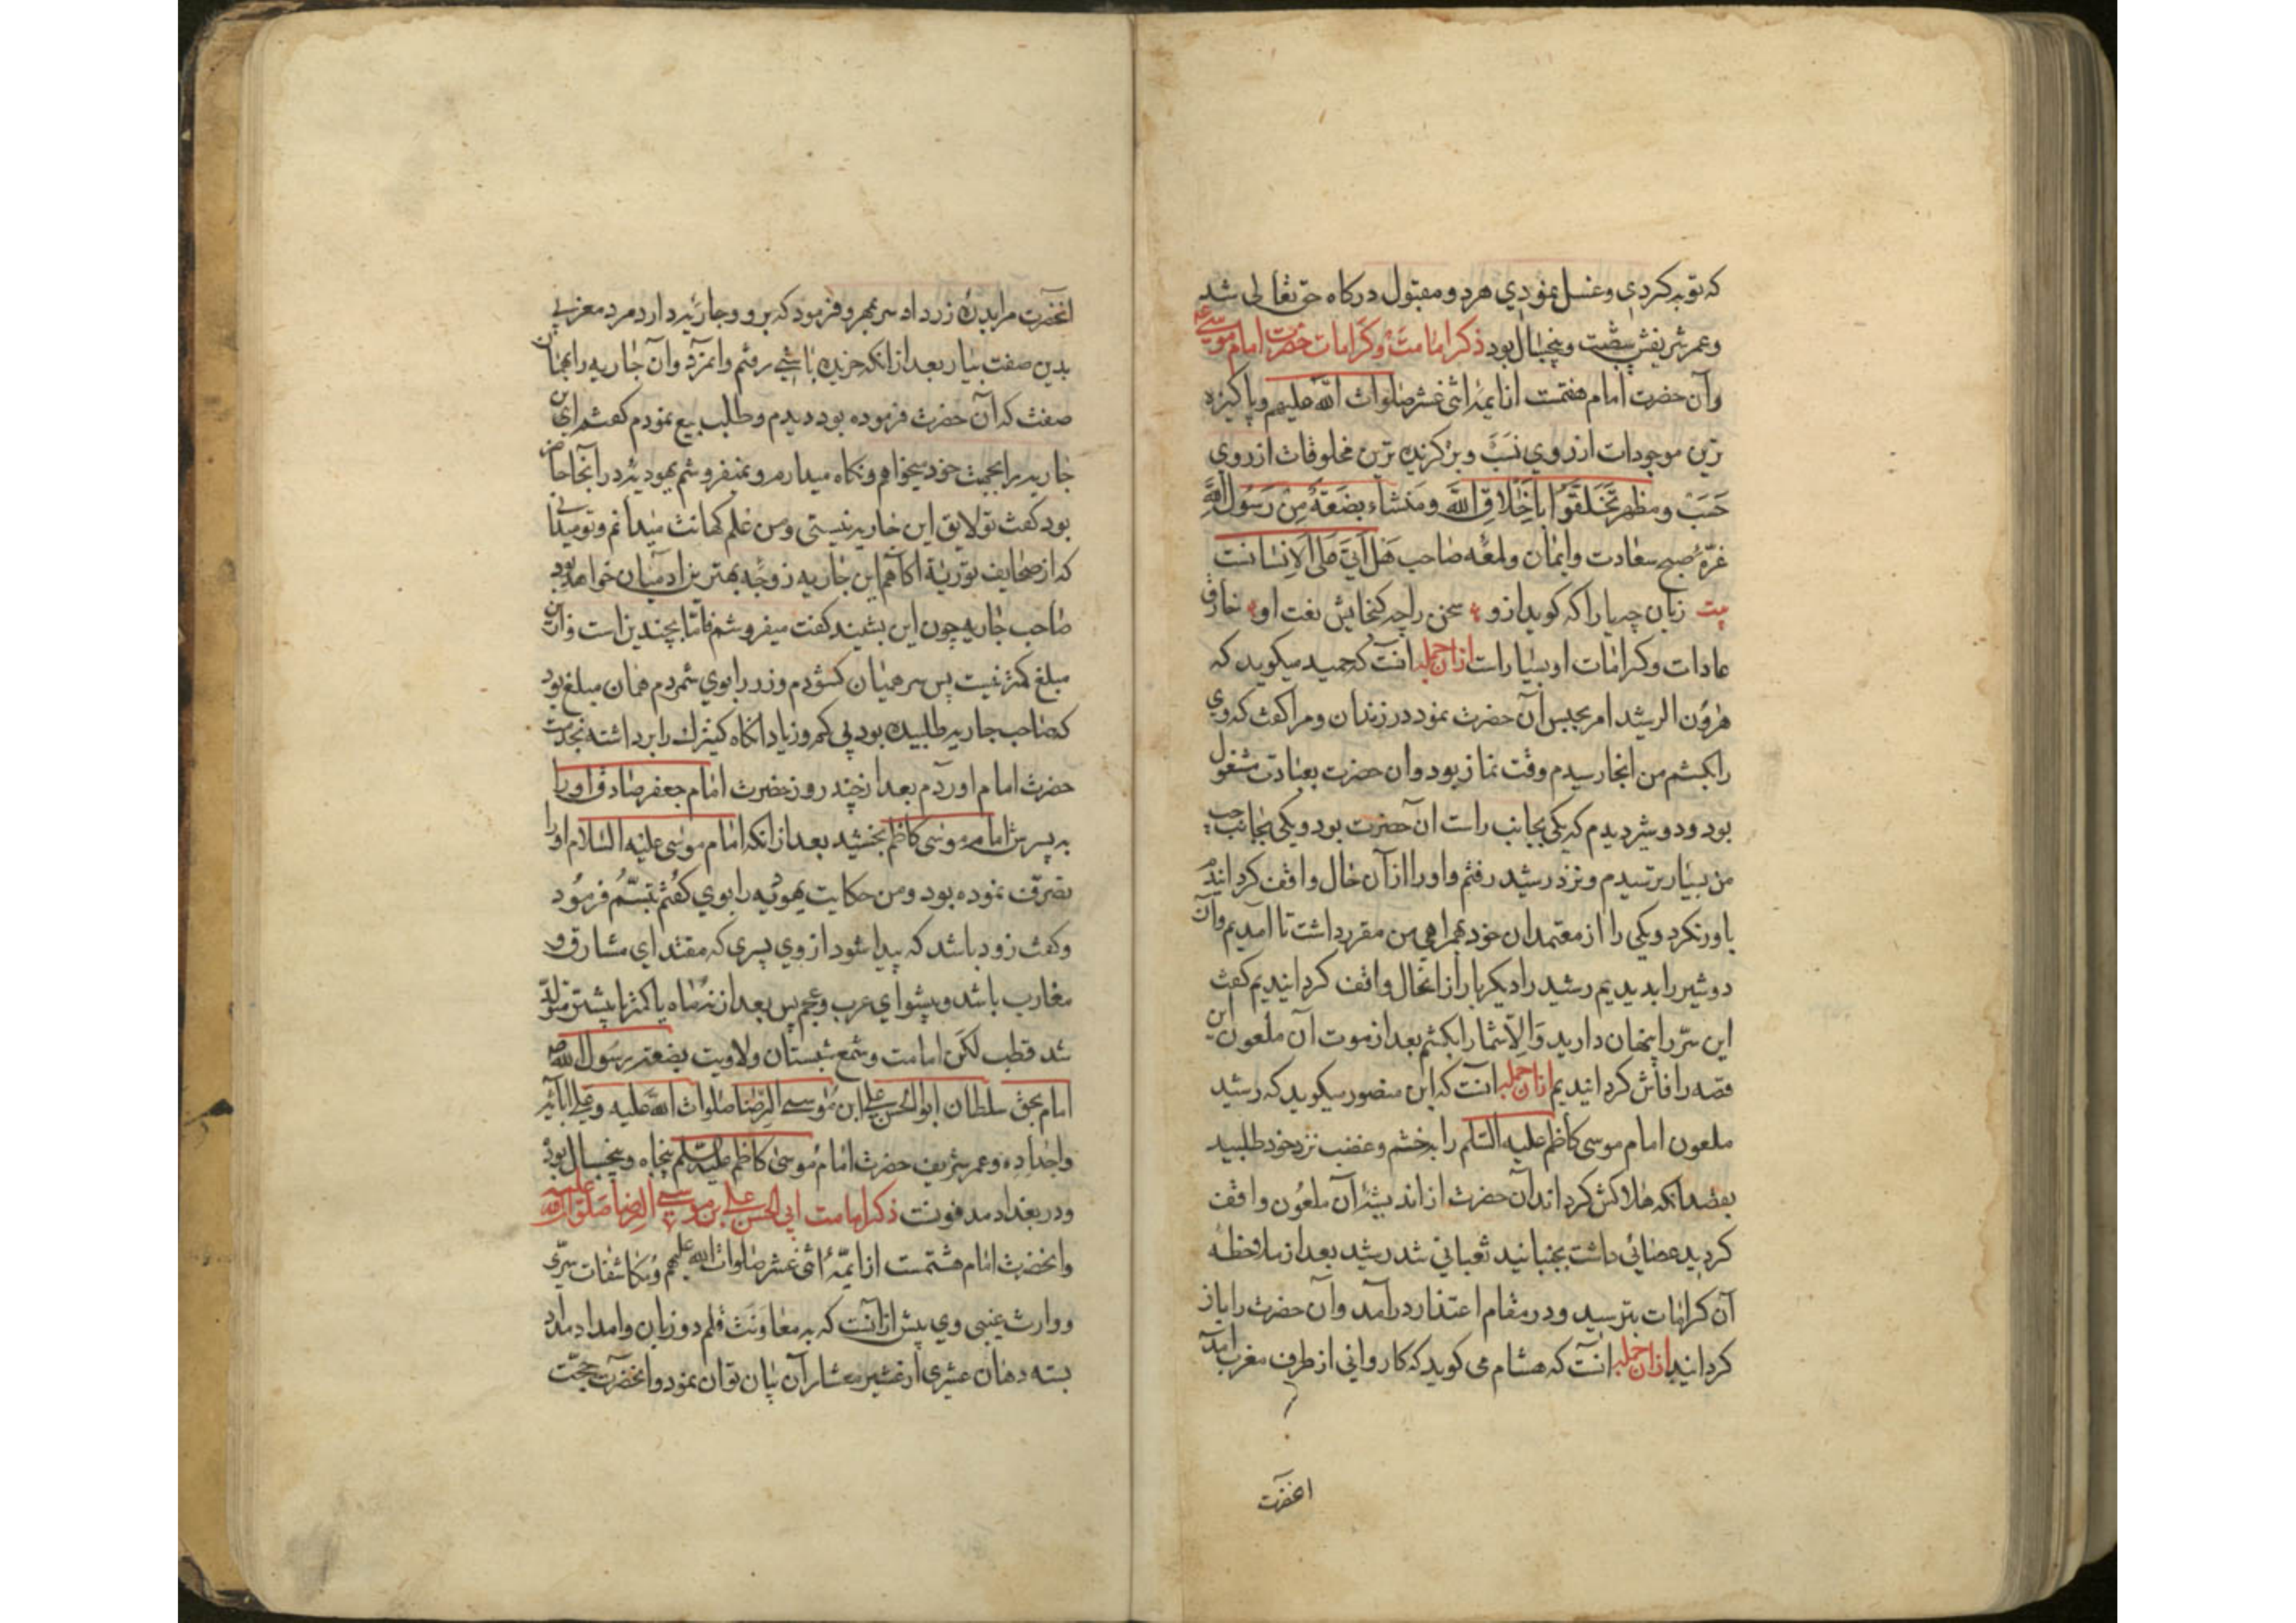 که توبه کردی و غسل نمودی هر دو مقبول درکاه حق تعالی شد
و عمر شریفش شصت و پنجسال بود ذکر امامت و کرامات حضرت امام موسی
و آن حضرت امام هفتمست از ایمهٔ اثنی عشر صلوات الله علیهم و پاکیزه
ترین موجودات از روی نسب و برکزیده ترین مخلوقات از روی
حسب و مظهر تخلقوا باخلاق الله و منشاء بضعة من رسول الله
غرهٔ صبح سعادت و ایمان و لمعهٔ صاحب هل اتی علی الانسانست
بیت زبان چه یارا که کوید ازو سخن را چه کنجایش نعت او خارق
عادات و کرامات او بسیارات ازان جمله انست که حمید میکوید که
هرون الرشید امر بحبس آن حضرت نمود در زندان و مرا کفت که وی
را بکشم من انجا رسیدم وقت نماز بود و ان حضرت بعبادت مشغول
بود و دو شیر دیدم که یکی بجانب راست ان حضرت بود و یکی بجانب چپ
من بسیار ترسیدم و نزد رشید رفتم و او را از آن حال واقف کردانیدم
باور نکرد و یکی را از معتمدان خود همراهی من مقرر داشت تا آمدیم و آن
دو شیر را بدیدیم رشید را دیکر بار از انحال واقف کردانیدیم کفت
این سر را پنهان دارید و الا شما را بکشم بعد از موت آن ملعون این
قصه را فاش کردانیدیم ازان جمله آنست که ابن منصور میکوید که رشید
ملعون امام موسی کاظم علیه السلم را بخشم و غضب نزد خود طلبید
بقصد انکه هلاکش کرداند آن حضرت از اندیشهٔ آن ملعون واقف
کردید عصائی داشت بجنبانید ثعبانی شد رشید بعد از ملاحظهٔ
آن کرامات بترسید و در مقام اعتذار درآمد و آن حضرت را باز
کردانید ازان جمله انست که هشام می کوید که کاروانی از طرف مغرب آمد
انحضرت
انحضرت مرا بدرهٔ زر داد سر بمهر و فرمود که برو و جاریهٔ دارد مرد مغربی
بدین صفت بیار بعد از انکه خریده باشی رفتم و انمرد و آن جاریه را بهمان
صفت که آن حضرت فرموده بود دیدم و طلب بیع نمودم کفت من این
جاریه را بجهت خود میخواهم و نکاه میدارم و نمیفروشم یهودیهٔ در آنجا حاضر
بود کفت تو لایق این جاریه نیستی و من علم کهانت میدانم و تو میدانی
که از صحایف توریة اکاهم این جاریه زوجهٔ بهترین ادمیان خواهد بود
صاحب جاریه چون این بشنید کفت میفروشم فاما بچندین است و از این
مبلغ کمتر نیست پس سر همیان کشودم و زر را بوی شمردم همان مبلغ بود
که صاحب جاریه طلبیده بود بی کم و زیاد انکاه کنیزک را برداشته بخدمت
حضرت امام اوردم بعد از چند روز حضرت امام جعفر صادق او را
به پسرش امام موسی کاظم بخشید بعد از انکه امام موسی علیه السلام او را
تصرف نموده بود و من حکایت یهودیه را بوی کفتم تبسم فرمود
و کفت زود باشد که پیدا شود از وی پسری که مقتدای مشارق و
مغارب باشد و پیشوای عرب و عجم پس بعد از نه ماه یا کمتر یا بیشتر متولد
شد قطب لکن امامت و شمع شبستان ولایت بضعه رسول الله
امام بحق سلطان ابو الحسن علی ابن موسی الرضا صلوات الله علیه و علی ابائه
و اجداده و عمر شریف حضرت امام موسی کاظم علیه السلم پنجاه و پنجسال بود
و در بغداد مدفونست ذکر امامت ابی الحسن علی بن موسی الرضا صلوات الله علیه
و انحضرت امام هشتمست از ایمهٔ اثنی عشر صلوات الله علیهم و مکاشفات سری
و وارث غیبی وی بیش از آنست که به معاونت قلم دو زبان و امداد مداد
بسته دهان عشری از عشیر معشار آن بیان توان نمود و انحضرت حجت